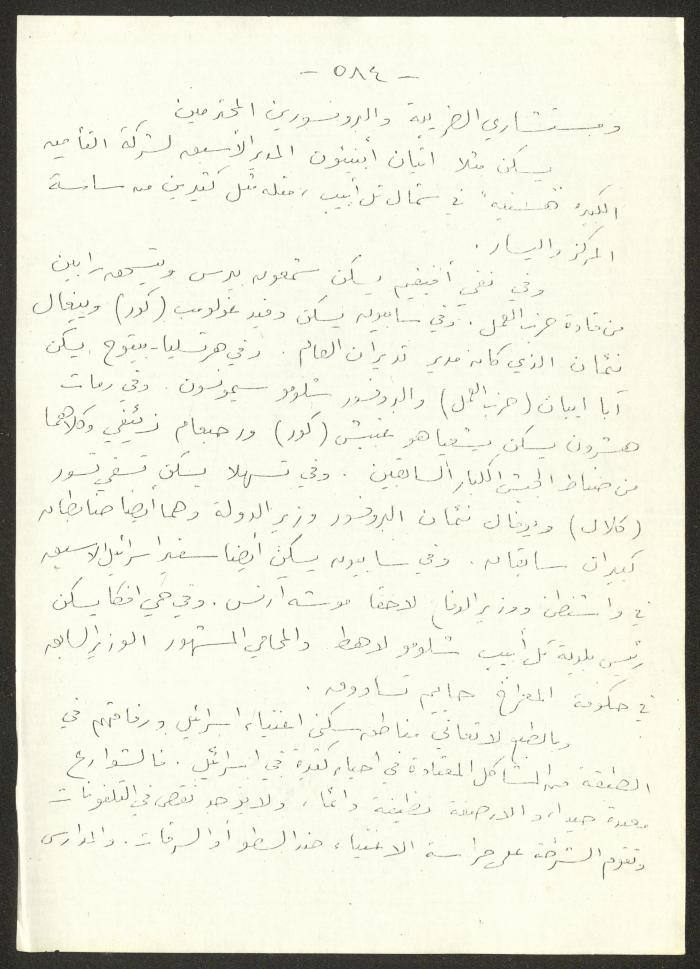 - ٥٨٤ -
ومستشاري الضريبة والبروفسورين المحترمين
يسكن مثلا ايتان أبنيئون المدير الأسبق لشركة التأمين
الكبيرة "هسنيه" في شمال تل أبيب، مثله مثل كثيرين من ساسة
المركز واليسار.
وفي نفي أفيفيم يسكن شمعون بيرس ويتسحق رابين
من قادة حزب العمل. وفي سابيون يسكن دفيد غولومب (كور) ويغال
نئمان الذي كان مدير تديران العام. وفي هرتسليا-بيتوح يسكن
آبا ايبان (حزب العمل) والبروفسور شلومو سيمونسون. وفي رمات
هشرون يسكن يشعياهو غبيش (كور) ورحبعام زئيفي وكلاهما
من ضباط الجيش الكبار السابقين. وفي تسهلا يسكن تسفي تسور
(كلال) ويوفال نئمان البروفسور وزير الدولة وهما أيضا ضابطان
كبيران سابقان. وفي سابيون يسكن أيضا سفير اسرائيل الاسبق
في واشنطن ووزير الدفاع لاحقا موشه أرنس. وفي حي افكا يسكن
رئيس بلدية تل أبيب شلومو لاهط والمحامي المشهور الوزير السابق
في حكومة المعراخ حاييم تسادوق.
وبالطبع لا تعاني مناطق سكنى اغنياء اسرائيل ورفاقهم في
الطبقة من المشاكل المعتادة في احياء كثيرة في اسرائيل. فالشوارع
معبدة جيدا، والارصفة نظيفة دائما، ولا يوجد نقص في التلفونات
وتقوم الشرطة على حراسة الاغنياء ضد السطو أو السرقات. والمدارس